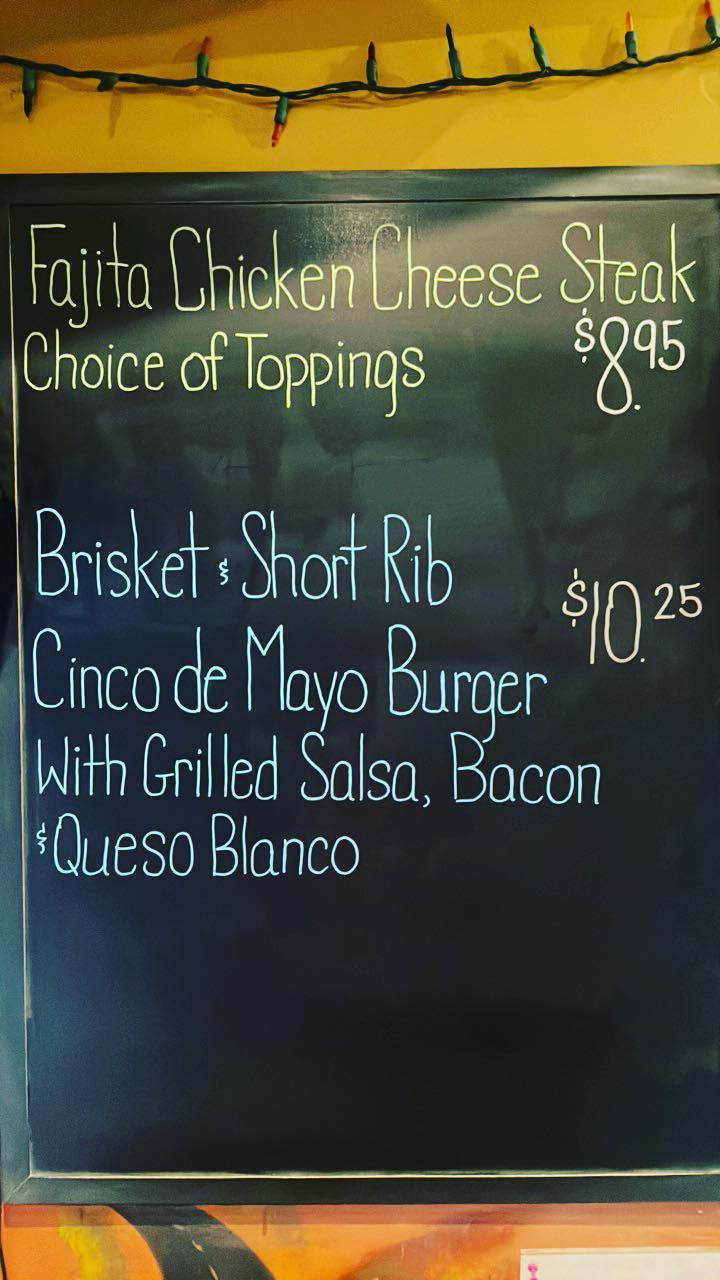 Fajita Chicken Cheese Steak
Choice of Toppings $8.95
Brisket & Short Rib
$10.25
Cinco de Mayo Burger
With Grilled Salsa, Bacon
& Queso Blanco